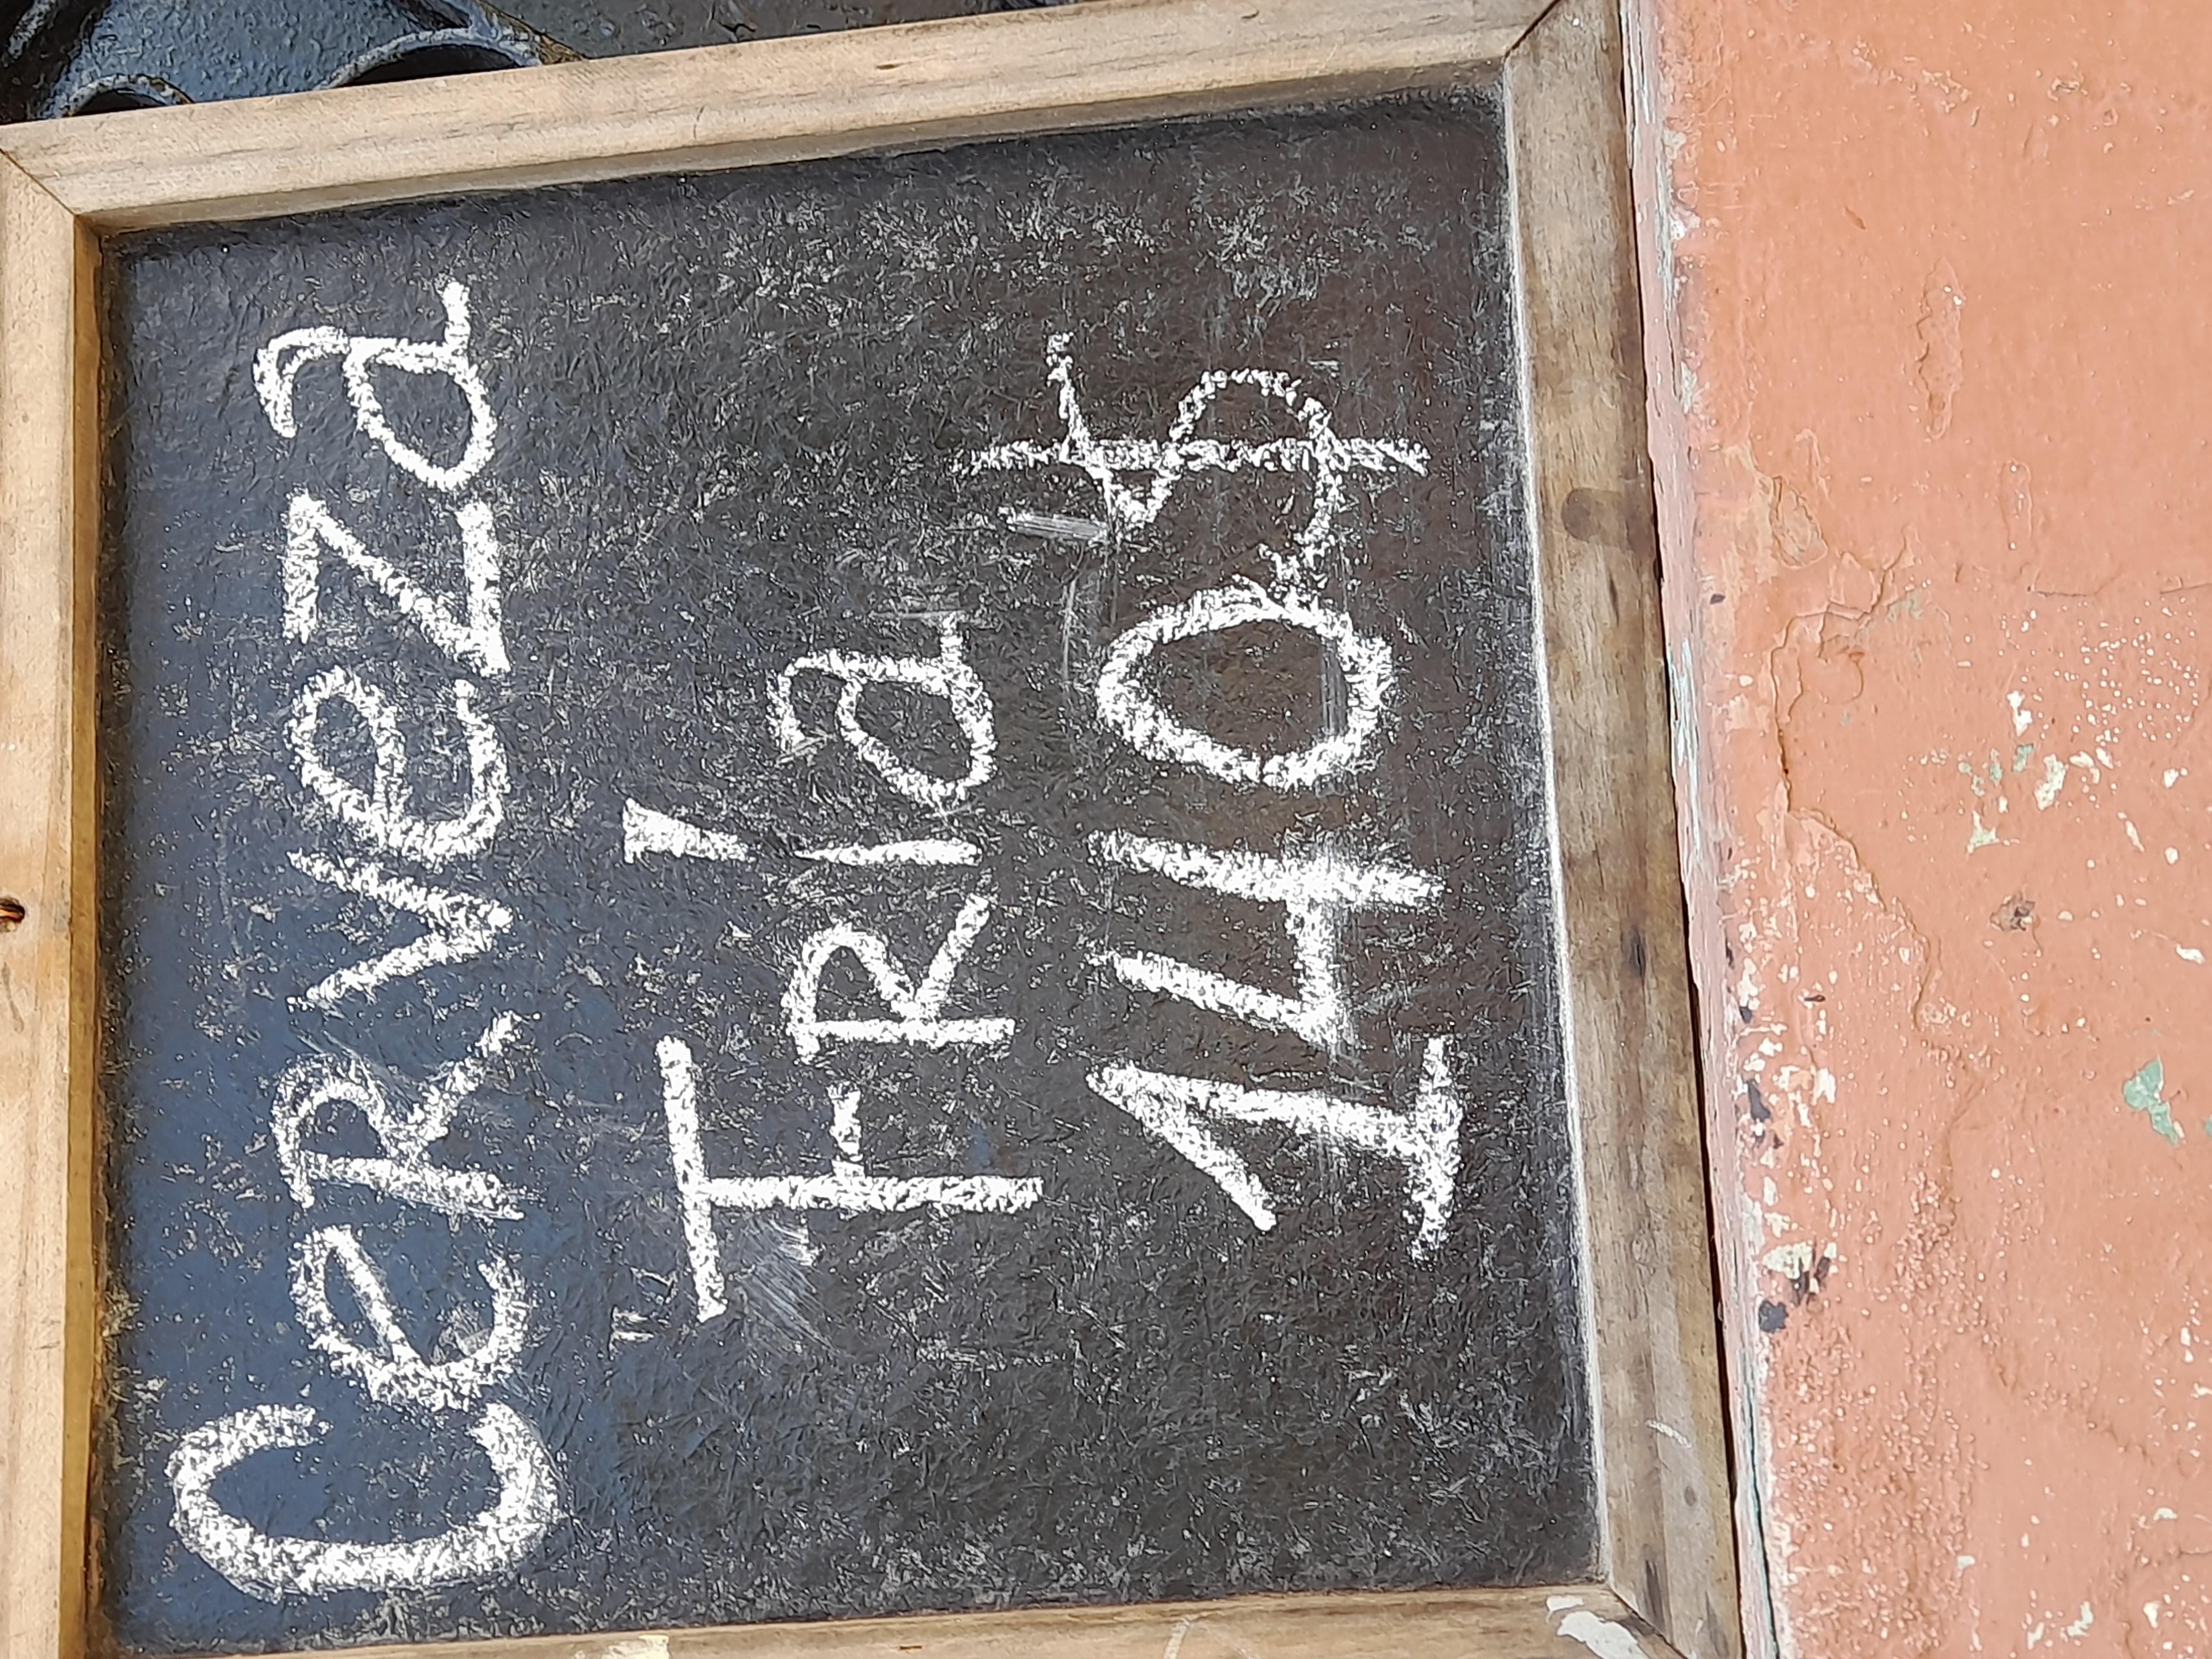 Cerveza
Fría
140$